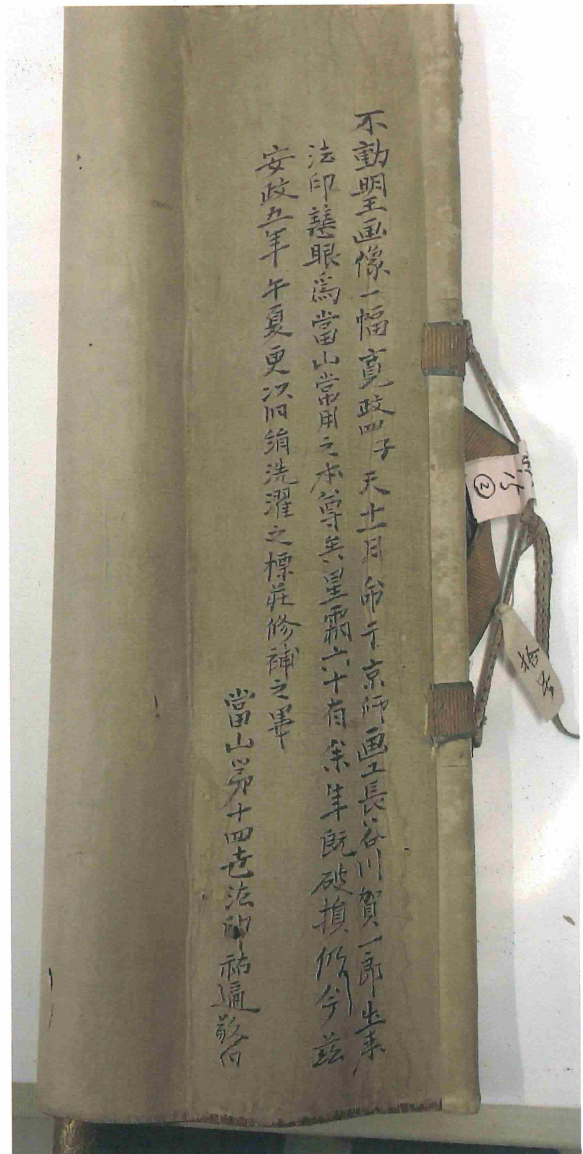 不動明王画像一幅寛政四子天十一月命于京師画工長谷川賀一郎出来
法印慈眼為當山常用之本尊矣星霜六十有余年既破損仍今茲
安政五年午夏更以旧絹洗濯之標荘修補之畢
當山第十四世法印祐遍敬白
②
拾号